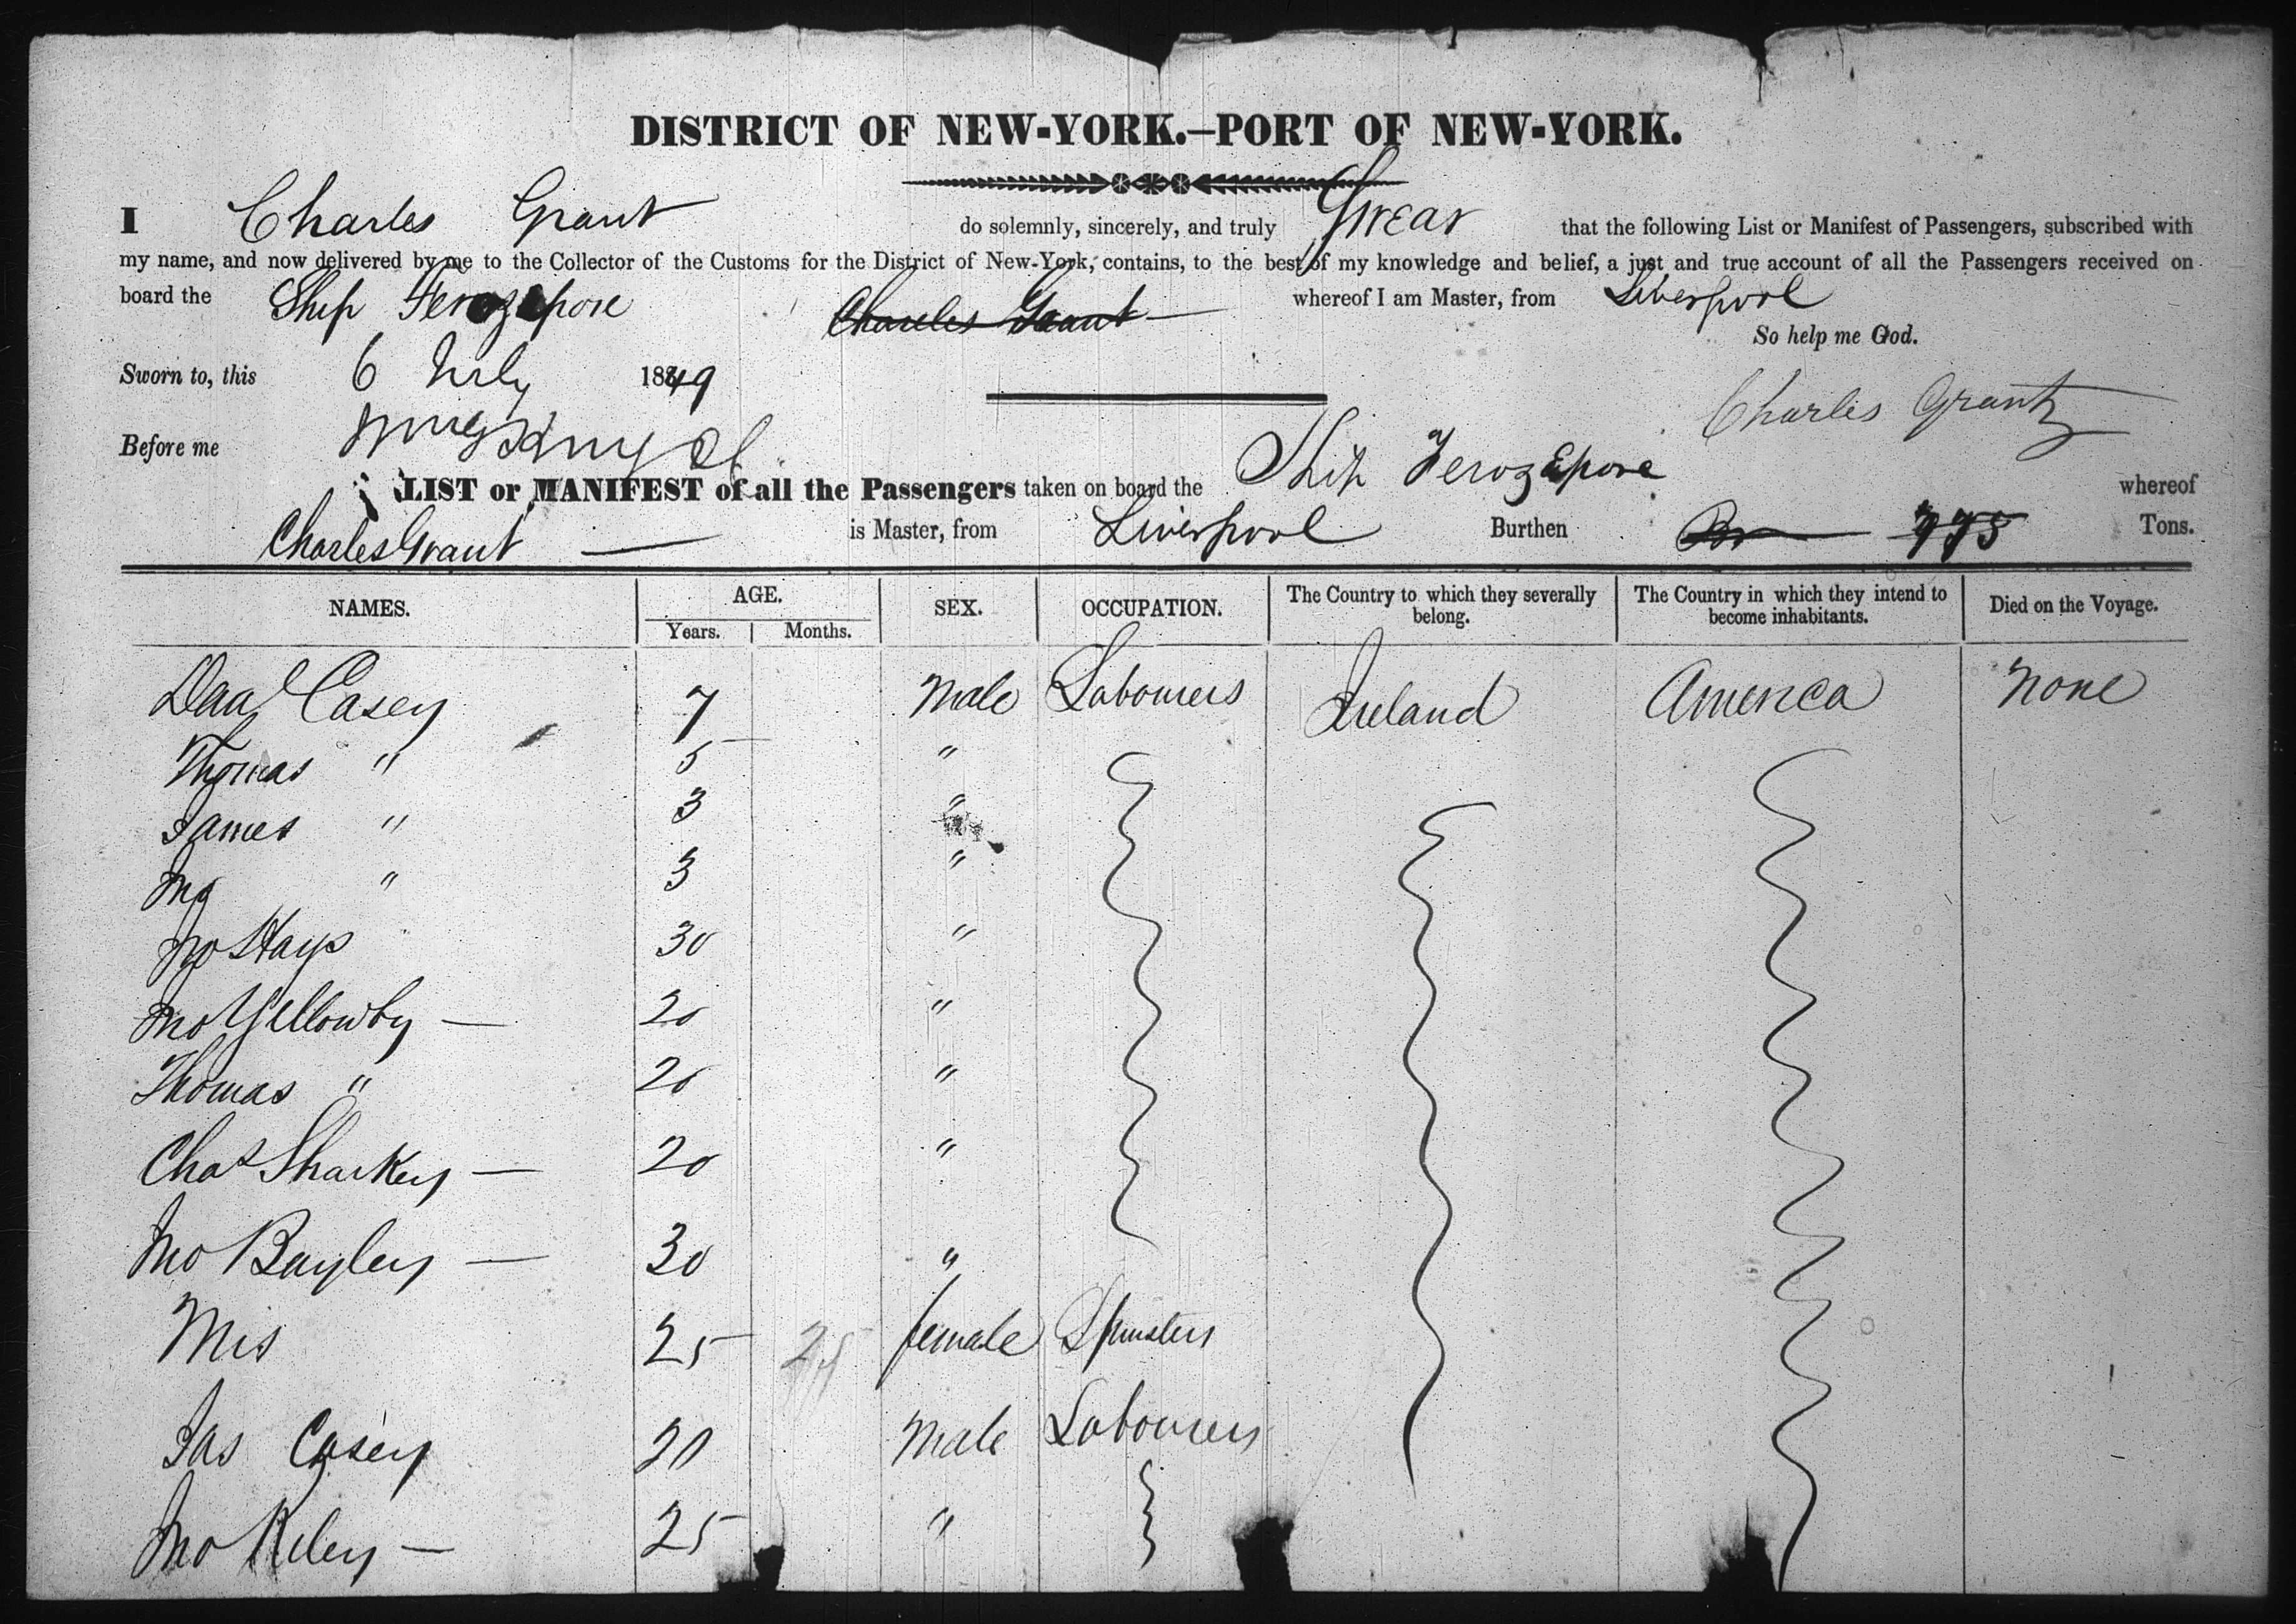 DISTRICT OF NEW-YORK.—PORT OF NEW-YORK.
I Charles Grant do solemnly, sincerely, and truly Swear that the following List or Manifest of Passengers, subscribed with
my name, and now delivered by me to the Collector of the Customs for the District of New-York, contains, to the best of my knowledge and belief, a just and true account of all the Passengers received on
board the Ship Ferozepore Charles Grant whereof I am Master, from Liverpool
So help me God.
Sworn to, this 6 July 1849
Charles Grant
Before me
LIST or MANIFEST of all the Passengers taken on board the Ship Ferozepore whereof
Charles Grant is Master, from Liverpool Burthen 775 Tons.
NAMES. AGE. SEX. OCCUPATION. The Country to which they severally belong. The Country in which they intend to become inhabitants. Died on the Voyage.
Years. Months.
Danl Casey 7 Male Labourers Ireland America None
Thomas " 5 "
James " 3 "
" 3 "
Jno Hays 30 "
Jno Yellowby — 20 "
Thomas " 20 "
Chas Sharkey — 20 "
Jno Bayley — 30 "
Mrs 25 25 female Spinsters
Jas Casey 20 Male Labourers
Jno Riley — 25 "